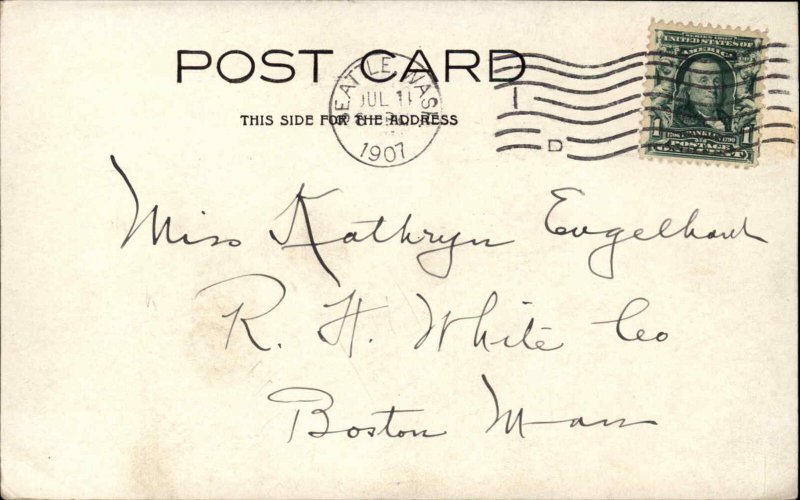 POST CARD
THIS SIDE FOR THE ADDRESS
SEATTLE, WASH.
JUL 11
1907
D
UNITED STATES OF
AMERICA
1 FRANKLIN 1
POSTAGE
ONE CENT
Miss Kathryn Engelhardt
R. H. White Co
Boston Mass